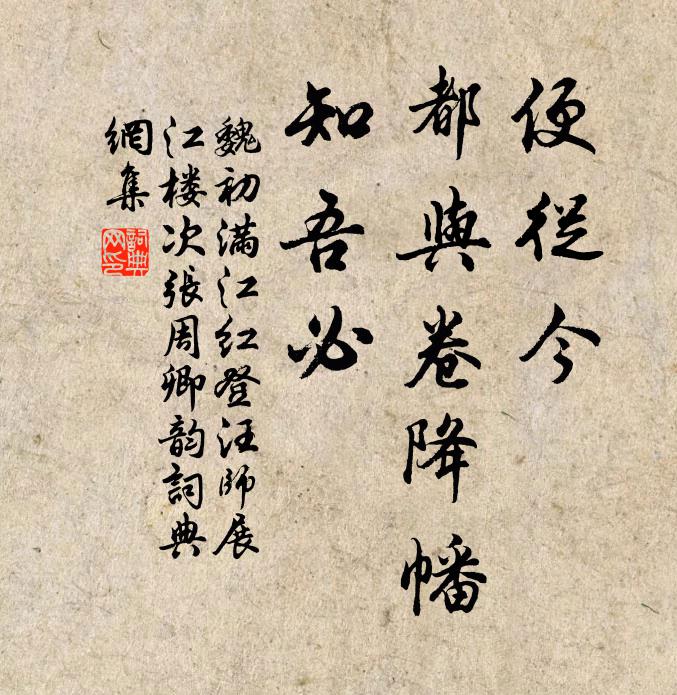 便從今
都與卷降幡
知吾必
魏初满江红登汪帅展
江楼次張周卿韵詞典
網集
詞典網印